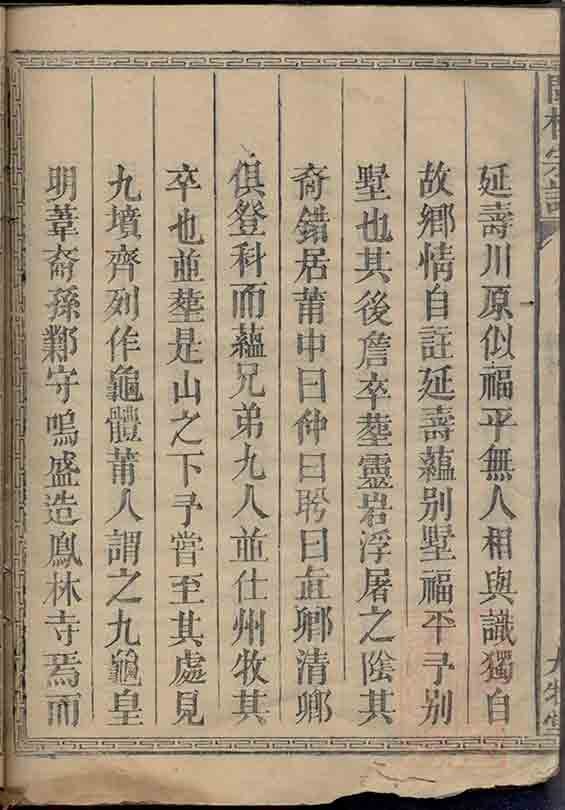 延壽川原似福平無人相與識獨自
故鄉情自註延壽蘊别墅福平予别
墅也其後詹卒塟靈岩浮屠之陰其
裔錯居莆中曰仲曰肹曰㽵卿清卿
俱登科而蘊兄弟九人並仕州牧其
卒也並塟是山之下予嘗至其處見
九墳齊列作龜體莆人謂之九龜皇
明葦裔孫鄴守嗚盛造鳳林寺焉而